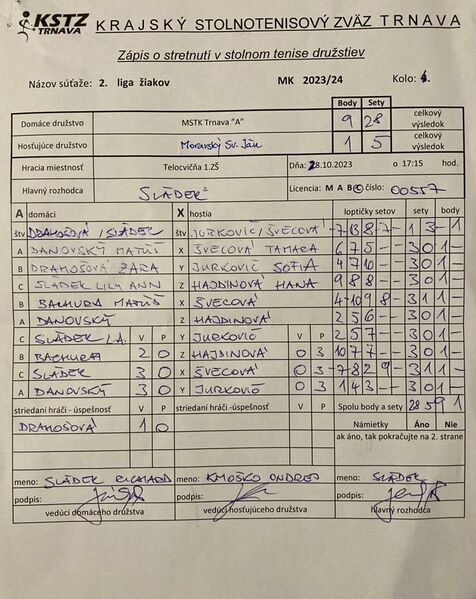 KSTZ TRNAVA KRAJSKÝ STOLNOTENISOVÝ ZVÄZ TRNAVA
Zápis o stretnutí v stolnom tenise družstiev
Názov súťaže: 2. liga žiakov MK 2023/24 Kolo: 4.
Body Sety
Domáce družstvo MSTK Trnava "A" 9 28 celkový výsledok
Hosťujúce družstvo Moravský Sv. Ján 1 5 celkový výsledok
Hracia miestnosť Telocvičňa 1.ZŠ Dňa: 28.10.2023 o 17:15 hod.
Hlavný rozhodca SLÁDEK Licencia: M A B C číslo: 00557
A domáci X hostia loptičky setov sety body
štv DRAHOŠOVÁ / SLÁDEK štv JURKOVIČ / ŠVECOVÁ -7 13 8 7 - 1 3 - 1
A DANOVSKÝ MATÚŠ X ŠVECOVÁ TAMARA 6 7 5 - - 3 0 1 -
B DRAHOŠOVÁ ZARA Y JURKOVIČ SOFIA 4 7 10 - - 3 0 1 -
C SLÁDEK LILY ANN Z HAJDINOVÁ HANA 9 8 8 - - 3 0 1 -
B BACHURA MATÚŠ X ŠVECOVÁ 4 -10 9 8 - 3 1 1 -
A DANOVSKÝ Z HAJDINOVÁ 2 5 6 - - 3 0 1 -
C SLÁDEK L.A. V P Y JURKOVIČ V P 2 5 7 - - 3 0 1 -
B BACHURA 2 0 Z HAJDINOVÁ 0 3 10 7 7 - - 3 0 1 -
C SLÁDEK 3 0 X ŠVECOVÁ 0 3 -7 8 2 9 - 3 1 1 -
A DANOVSKÝ 3 0 Y JURKOVIČ 0 3 1 4 3 - - 3 0 1 -
striedaní hráči -úspešnosť V P striedaní hráči -úspešnosť V P Spolu body a sety 28 5 9 1
DRAHOŠOVÁ 1 0 Námietky Áno Nie
ak áno, tak pokračujte na 2. strane
meno: SLÁDEK RICHARD meno: KMOŠKO ONDREJ meno: SLÁDEK
podpis: podpis: podpis:
vedúci domáceho družstva vedúci hosťujúceho družstva hlavný rozhodca